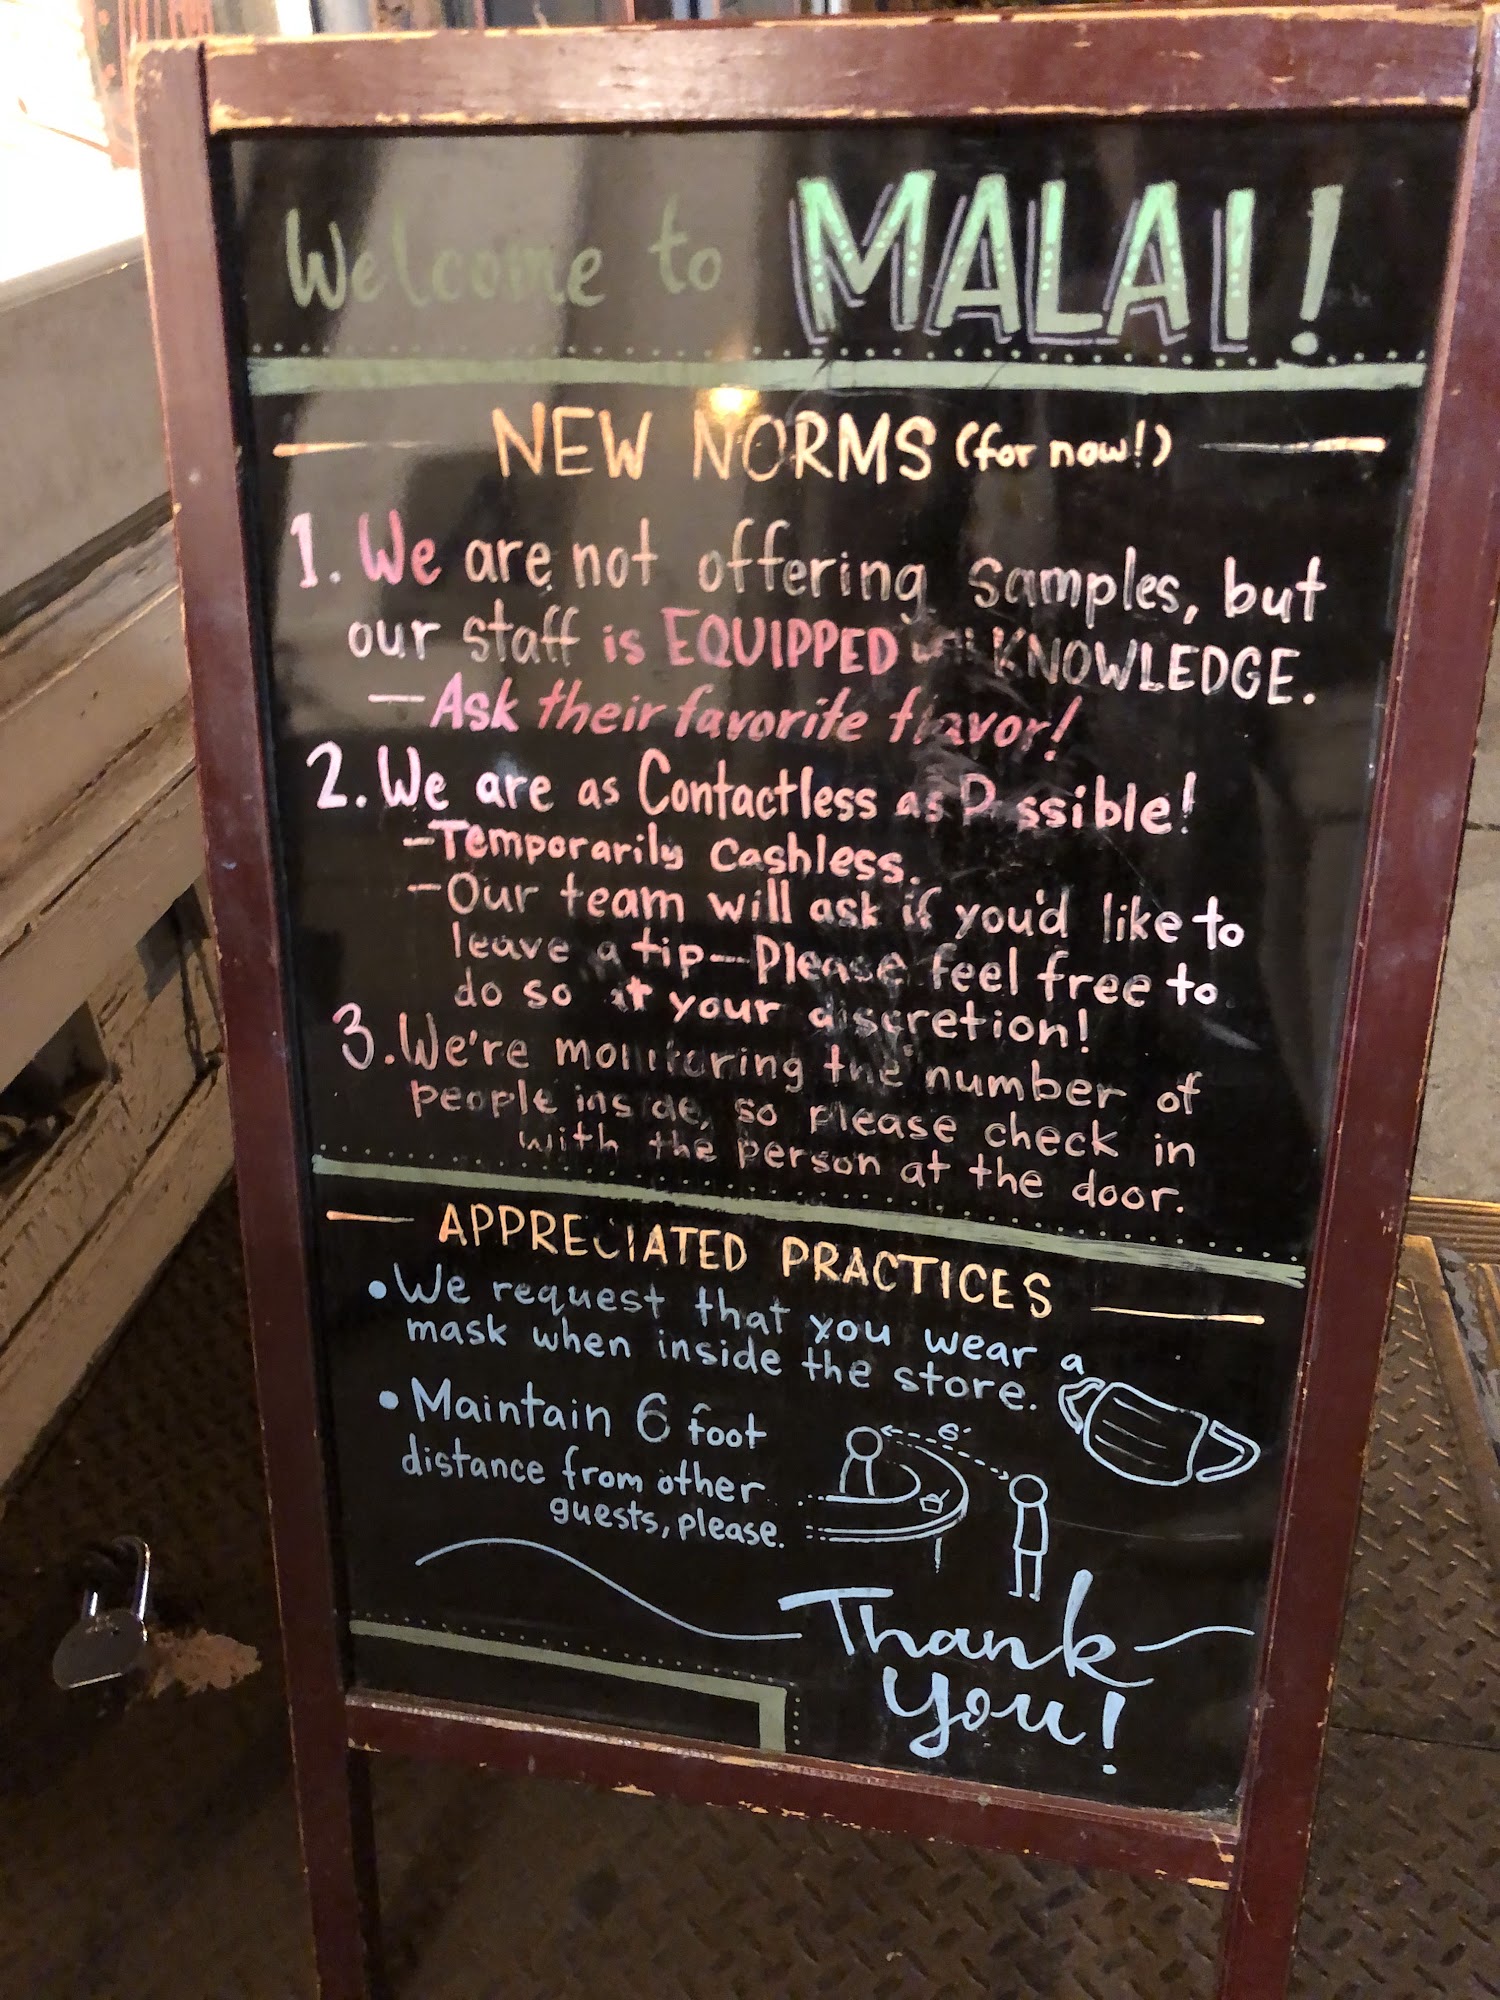 Welcome to MALAI!
NEW NORMS (for now!)
1. We are not offering samples, but
our staff is EQUIPPED with KNOWLEDGE.
— Ask their favorite flavor!
2. We are as Contactless as Possible!
- Temporarily Cashless.
- Our team will ask if you'd like to
leave a tip—Please feel free to
do so at your discretion!
3. We're monitoring the number of
people inside, so please check in
with the person at the door.
APPRECIATED PRACTICES
• We request that you wear a
mask when inside the store.
• Maintain 6 foot
distance from other
guests, please.
6'
Thank
you!